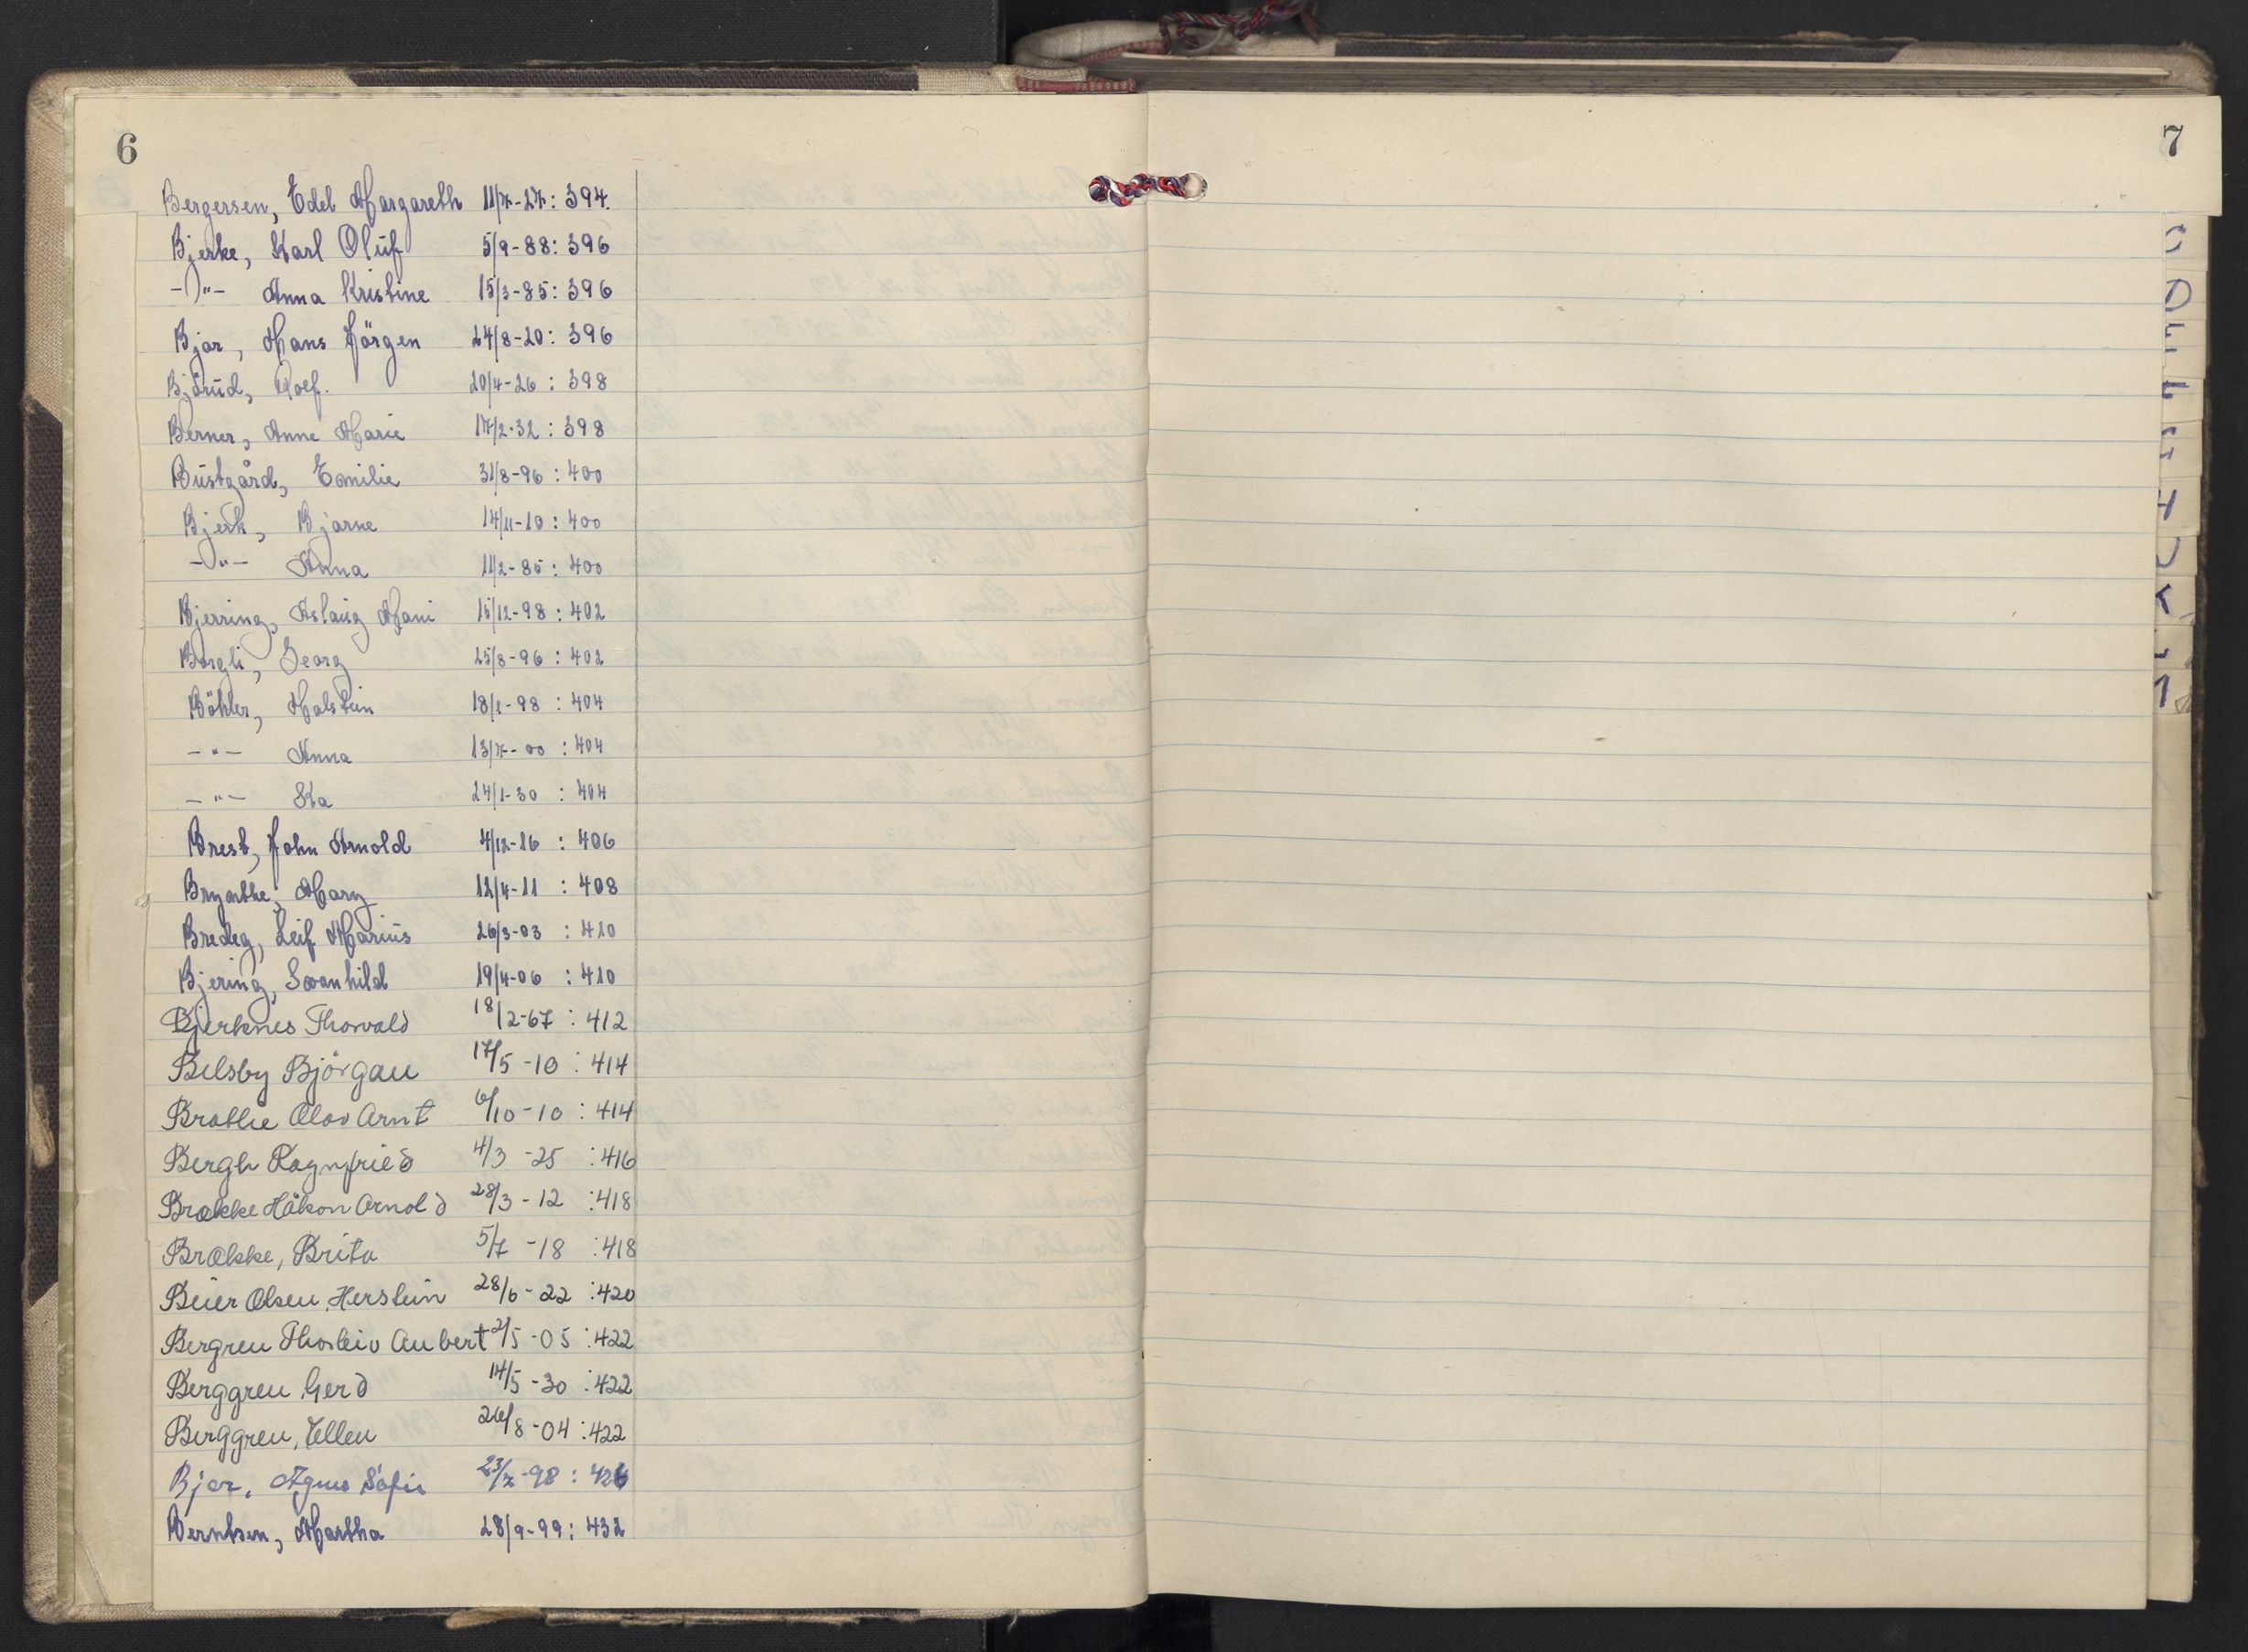 6
Bergersen, Edel Margareth 11/7-27: 394.
Bjerke, Karl Oluf 5/9-88: 396
-"- Anna Kristine 15/3-85: 396
Bjar, Hans Jörgen 24/8-20: 396
Björud, Rolf. 20/4-26: 398
Berner, Anne Marie 17/2-32: 398
Bustgård, Emilie 31/8-96: 400
Bjerk, Bjarne 14/11-10: 400
-"- Anna 11/2-85: 400
Bjerring, Aslaug Mani 15/12-98: 402
Bergli, Georg 25/8-96: 402
Böhler, Halstein 18/1-98: 404
-"- Anna 13/7-00: 404
-"- Ka 24/1-30: 404
Brest, John Arnold 4/12-16: 406
Mary 12/4-11: 408
Bredeg, Leif Marius 26/3-03: 410
Bjering, Svanhild 19/4-06: 410
Bjerknes Thorvald 18/2-67: 412
Bilsby Björgau 17/5-10: 414
Brathe Olav Arnt 6/10-10: 414
Bergh Ragnfried 4/3-25: 416
Brække Håkon Arnold 28/3-12: 418
Brække, Brita 5/7-18: 418
Beier Olsen, Herstein 28/6-22: 420
Bergren Thorleiv Aubert 2/5-05: 422
Berggren, Gerd 14/5-30: 422
Berggren, Ellen 26/8-04: 422
Bjar, Agnes Sofie 23/7-98: 426
Berntsen, Martha 28/9-99: 432
7
C
D
E
F
G
H
J
K
L
M